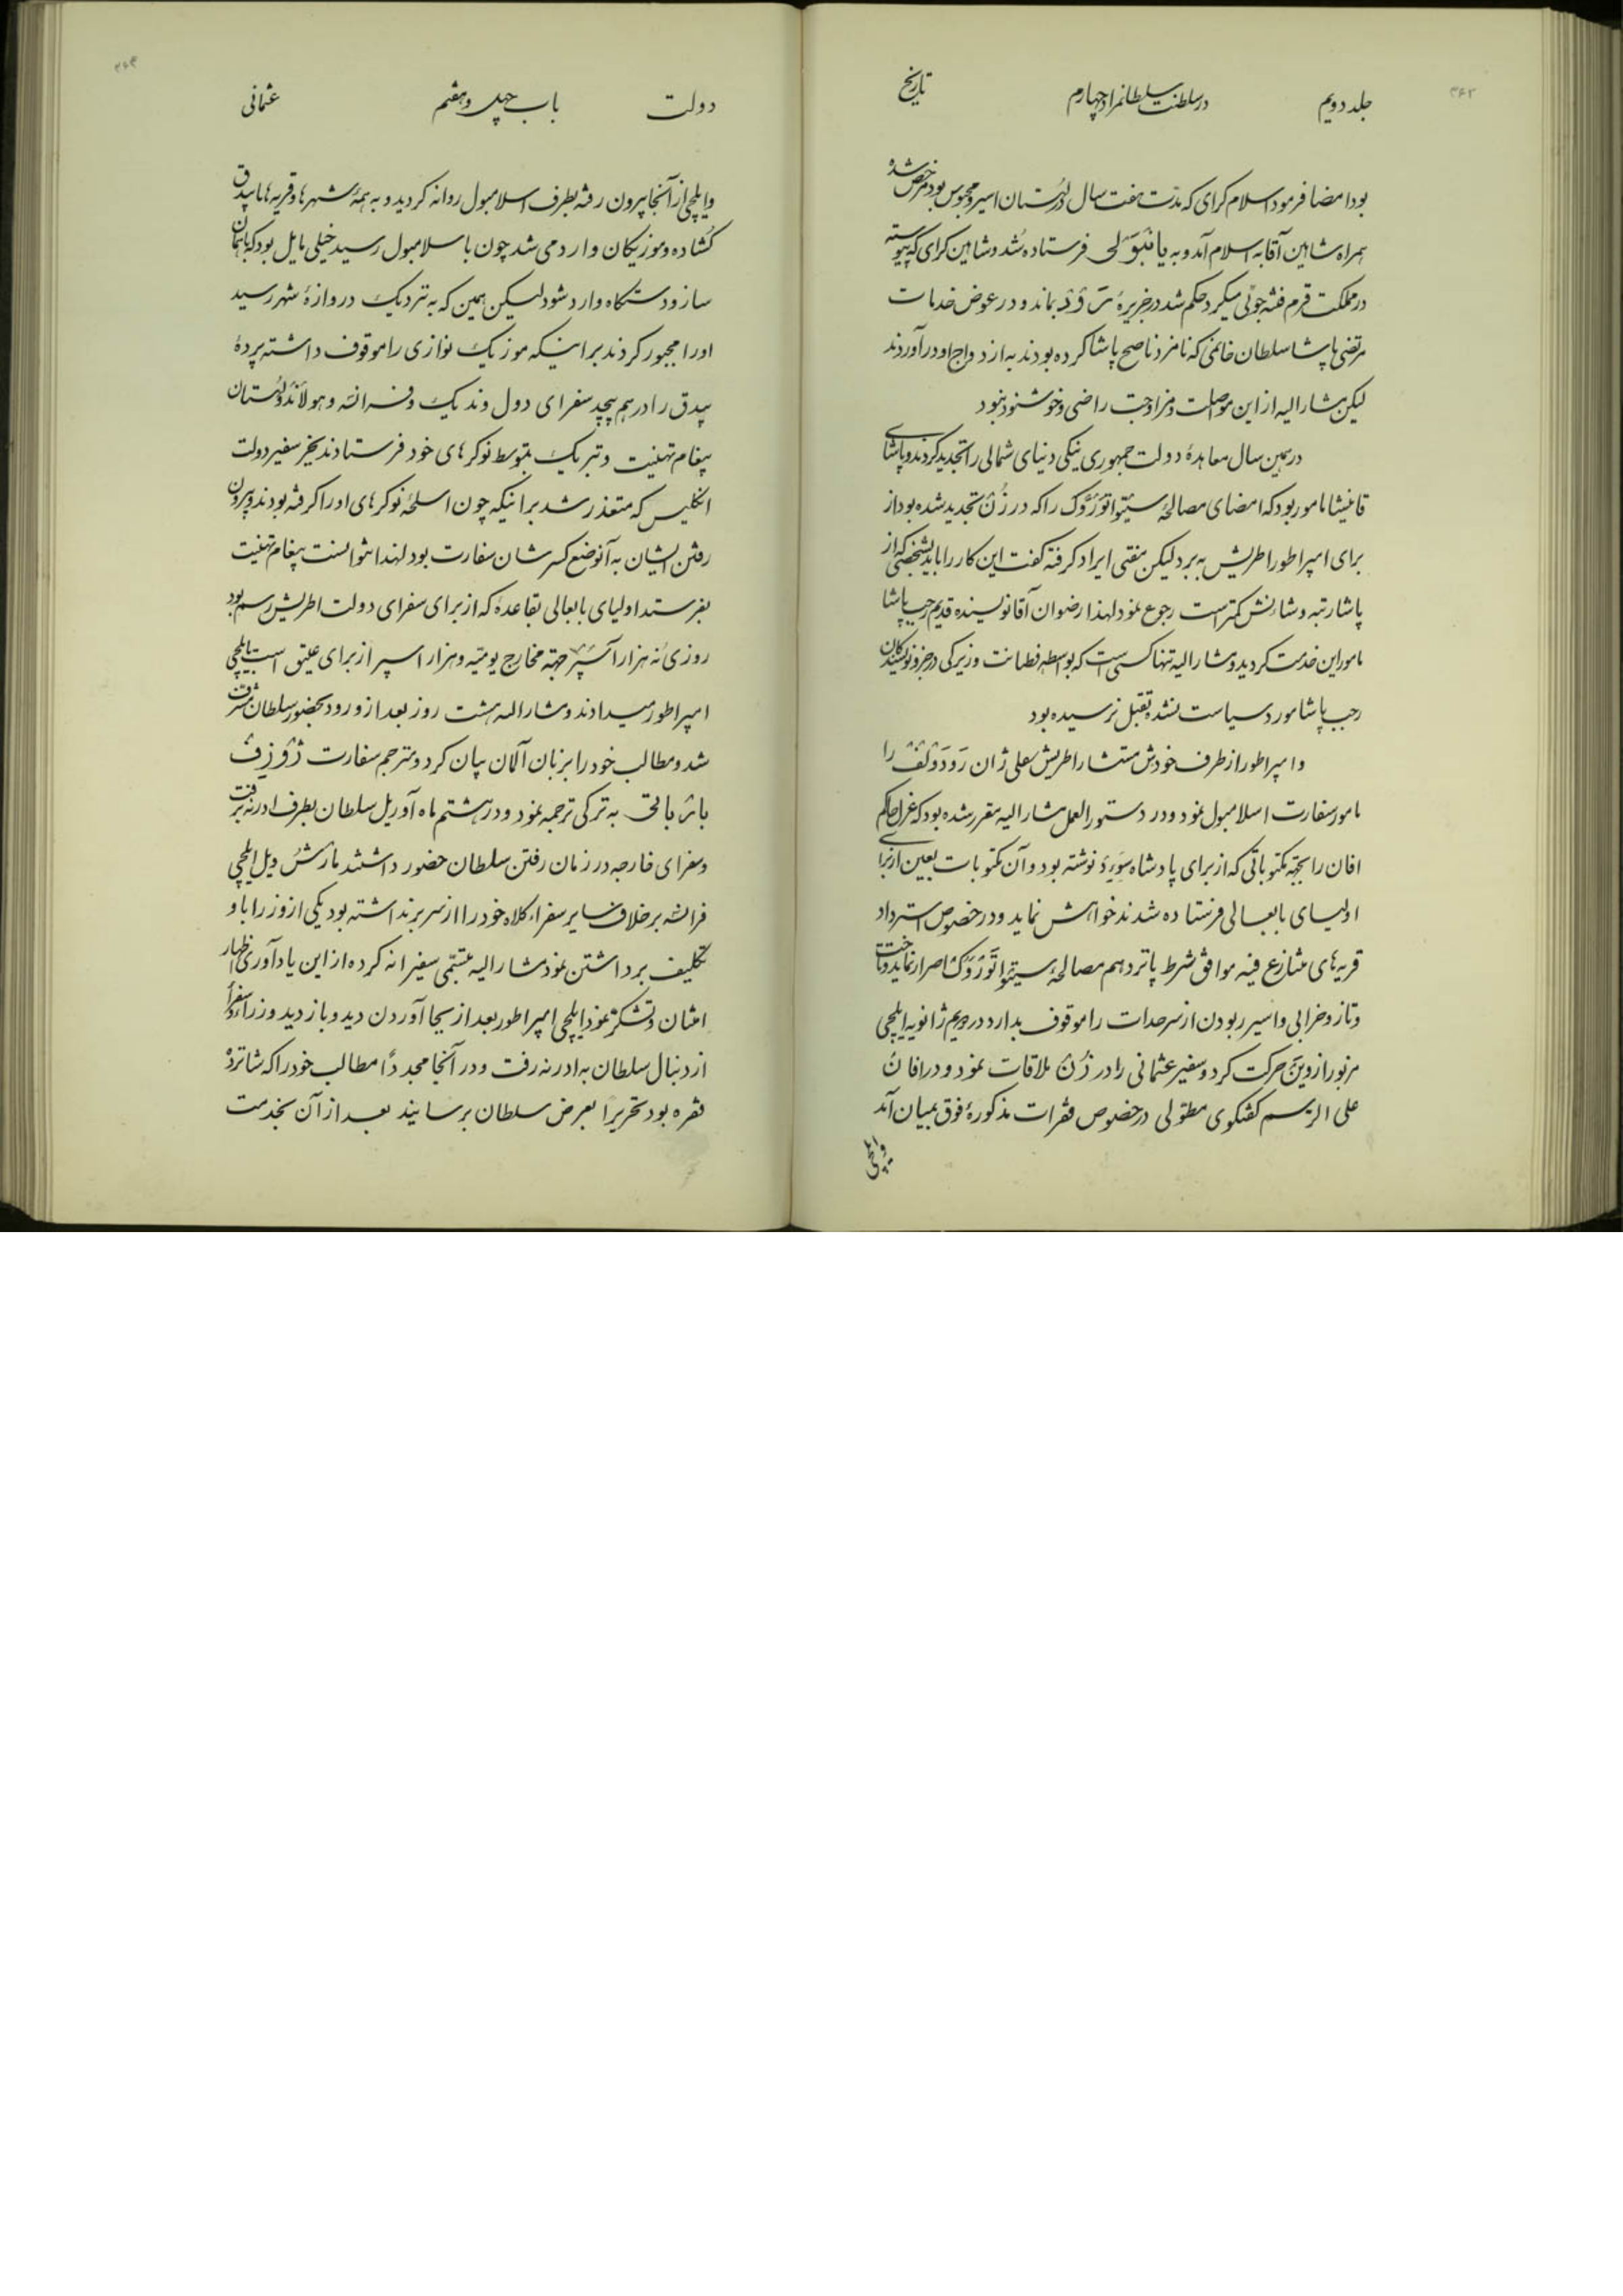 ۳۶۲
جلد دویم در سلطنت سلطانمراد چهارم تاریخ
بود امضا فرمود اسلام کرای که مدّت هفت سال در لهستان اسیر و محبوس بود مرخص شده
همراه شاهین آقا به اسلام آمد و به یانبولی فرستاده شد و شاهین کرای که پیوسته
در مملکت قرم فتنه جوئی میکرد حکم شد در جزیرهٔ بماند و در عوض خدمات
مرتضی پاشا سلطان خانمی که نامزد ناصح پاشا کرده بودند به ازدواج او درآوردند
لیکن مشارالیه از این مواصلت و مزاوجت راضی و خوشنود نبود
در همین سال معاهدهٔ دولت جمهوری ینکی دنیای شمالی را تجدید کردند و پاشای
قانیشا مامور بود که امضای مصالحهٔ سیتواتوروک را که در زُن تجدید شده بود از
برای امپراطور اطریش به برد لیکن مفتی ایراد کرفته کفت این کار را باید بشخصی که از
پاشا رتبه و شانش کمتر است رجوع نمود لهذا رضوان آقا نویسنده قدیم رجب پاشا
مامور این خدمت کردید و مشارالیه تنها کسی است که بواسطه فطانت و زیرکی در جزو نویسندکان
رجب پاشا مورد سیاست نشده بقتل نرسیده بود
و امپراطور از طرف خودش مستشار اطریش سفلی ژان رَودَولف را
مامور سفارت اسلامبول نمود و در دستورالعمل مشارالیه مقرر شده بود که عزل حاکم
افان را بجهة مکتوباتی که از برای پادشاه سوِد نوشته بود و آن مکتوبات بعین از برای
اولیای بابعالی فرستاده شدند خواهش نماید و در خصوص استرداد
قریه های متنازع فیه موافق شرط پانزدهم مصالحهٔ سیتواتوروک اصرار نماید و تاخت
و تاز و خرابی و اسیر ربودن از سرحدات را موقوف بدارد در دویم ژانویه ایلچی
مزبور از وین حرکت کرد و سفیر عثمانی را در زُن ملاقات نمود و در افان
علی الرسم کفتکوی مطوّلی در خصوص فقرات مذکورهٔ فوق بمیان آمد
و ایلچی
۳۶۳
دولت باب چهل و هفتم عثمانی
و ایلچی از آنجا بیرون رفته بطرف اسلامبول روانه کردید و به همهٔ شهرها و قریه ها با بیدق
کشاده و موزیکان وارد می شد چون باسلامبول رسید خیلی مایل بود که با همان
ساز و دستکاه وارد شود لیکن همین که به نزدیک دروازهٔ شهر رسید
او را مجبور کردند بر اینکه موزیک نوازی را موقوف داشته پردهٔ
بیدق را در هم پیچد سفرای دول وندیک و فرانسه و هولاند و لهستان
پیغام تهنیت و تبریک بتوسط نوکرهای خود فرستادند بغیر سفیر دولت
انکلیس که متعذر شد بر اینکه چون اسلحهٔ نوکرهای او را کرفته بودند و بیرون
رفتن ایشان به آنوضع کسر شان سفارت بود لهذا نتوانست پیغام تهنیت
بفرستد اولیای بابعالی بقاعدهٔ که از برای سفرای دولت اطریش رسم بود
روزی نه هزار آسپر جهة مخارج یومیّه و هزار اسپر از برای علیق اسب بایلچی
امپراطور میدادند و مشارالیه هشت روز بعد از ورود بحضور سلطان مشرف
شد و مطالب خود را بزبان آلمان بیان کرد و مترجم سفارت ژوزف
به ترکی ترجمه نمود و در هشتم ماه آوریل سلطان بطرف ادرنه برفت
و سفرای خارجه در زمان رفتن سلطان حضور داشتند مارشویل ایلچی
فرانسه بر خلاف سایر سفراء کلاه خود را از سر برنداشته بود یکی از وزرا باو
تکلیف برداشتن نمود مشارالیه تبسّمی سفیرانه کرده از این یادآوری اظهار
امتنان و تشکر نمود ایلچی امپراطور بعد از بجا آوردن دید و بازدید وزرآء و سفرآء
از دنبال سلطان به ادرنه رفت و در آنجا مجددًا مطالب خود را که شانزده
فقره بود تحریرًا بعرض سلطان برسانید بعد از آن بخدمت